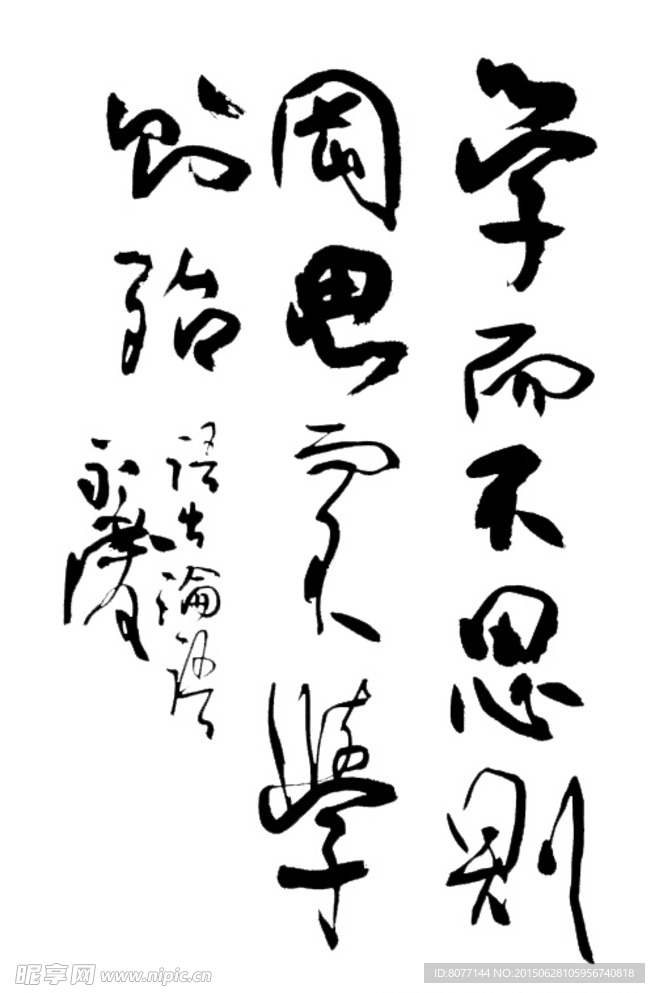 学而不思則
罔思而不學
則殆
語出論語
永
昵享网 www.nipic.cn
ID:8077144 NO:20150628105956740818